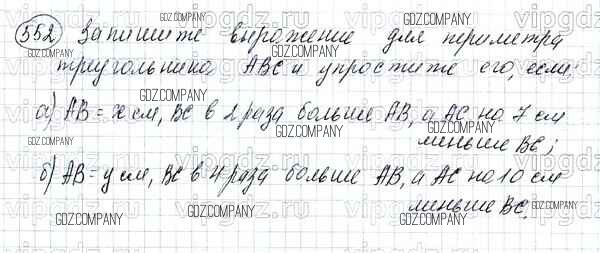 552 Запишите выражение для периметра
треугольника ABC и упростите его, если:
а) AB = x см, BC в 2 раза больше AB, а AC на 7 см
меньше BC;
б) AB = y см, BC в 4 раза больше AB, а AC на 10 см
меньше BC.
GDZ.COMPANY
vipgdz.ru